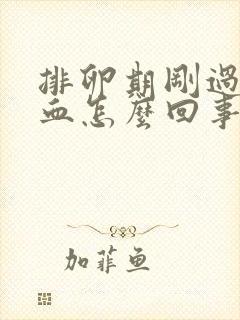 排卵期剛過
血怎麼回事
加菲魚